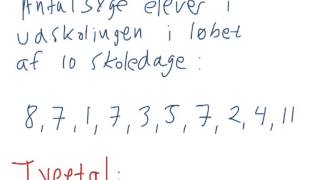 Antal syge elever i
udskolingen i løbet
af 10 skoledage:
8, 7, 1, 7, 3, 5, 7, 2, 4, 11
Typetal: